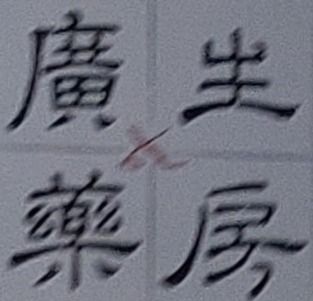 廣生
藥房